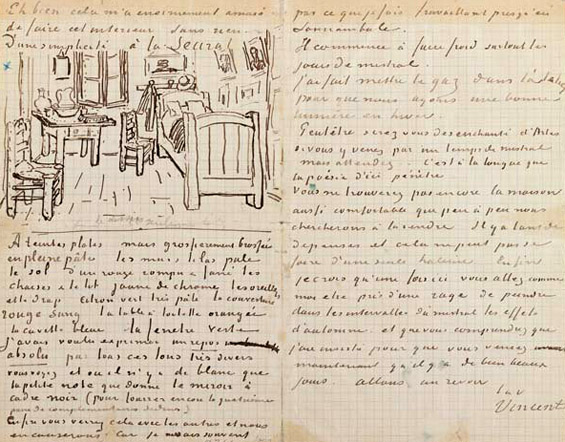 Eh bien cela m'a enormement amusé
de faire cet interieur sans rien
D'une simplicité à la Seurat
A teintes plates mais grossierement brossées
en pleine pâte les murs lilas pale
le sol d'un rouge rompu & fané les
chaises & le lit jaune de chrome les oreillers
et le drap citron vert très pâle la couverture
rouge sang la table à toilette orangée
la cuvette bleue la fenetre verte
J'avais voulu exprimer un repos
absolu par tous ces tons très divers
vous voyez et où il n'y a de blanc que
la petite note que donne le miroir à
cadre noir (pour fourrer encore la quatrieme
paire de complementaires dedans)
Enfin vous verrez cela avec les autres et nous
en causerons Car je ne sais souvent
pas ce que je fais travaillant presqu'en
somnambule.
Il commence à faire froid surtout les
jours de mistral.
J'ai fait mettre le gaz dans
pour que nous ayons une bonne
lumiere en hiver.
Peutêtre serez vous desenchanté d'Arles
si vous y venez par un temps de mistral
mais attendez. C'est à la longue que
la poésie d'ici pénètre
Vous ne trouverez pas encore la maison
aussi confortable que peu à peu nous
chercherons à la rendre Il y a tant de
depenses et cela ne peut pas se
faire d'une seule haleine Enfin
je crois qu'une fois ici vous allez comme
moi etre pris d'une rage de peindre
dans les intervalles du mistral les effets
d'automne et que vous comprendrez que
j'ai insisté pour que vous veniez
maintenant qu'il y a de bien beaux
jours allons au revoir
t.à.v
Vincent